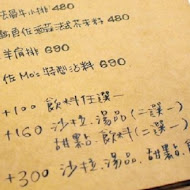 法屬牛小排 480
佐蒔蘿法式芥末籽 480
羊肩排 690
佐Mo's特製沾料 690
+100 飲料任選一
+160 沙拉.湯品(二選一)
甜點.飲料(二選一)
+300 沙拉.湯品.甜點.飲